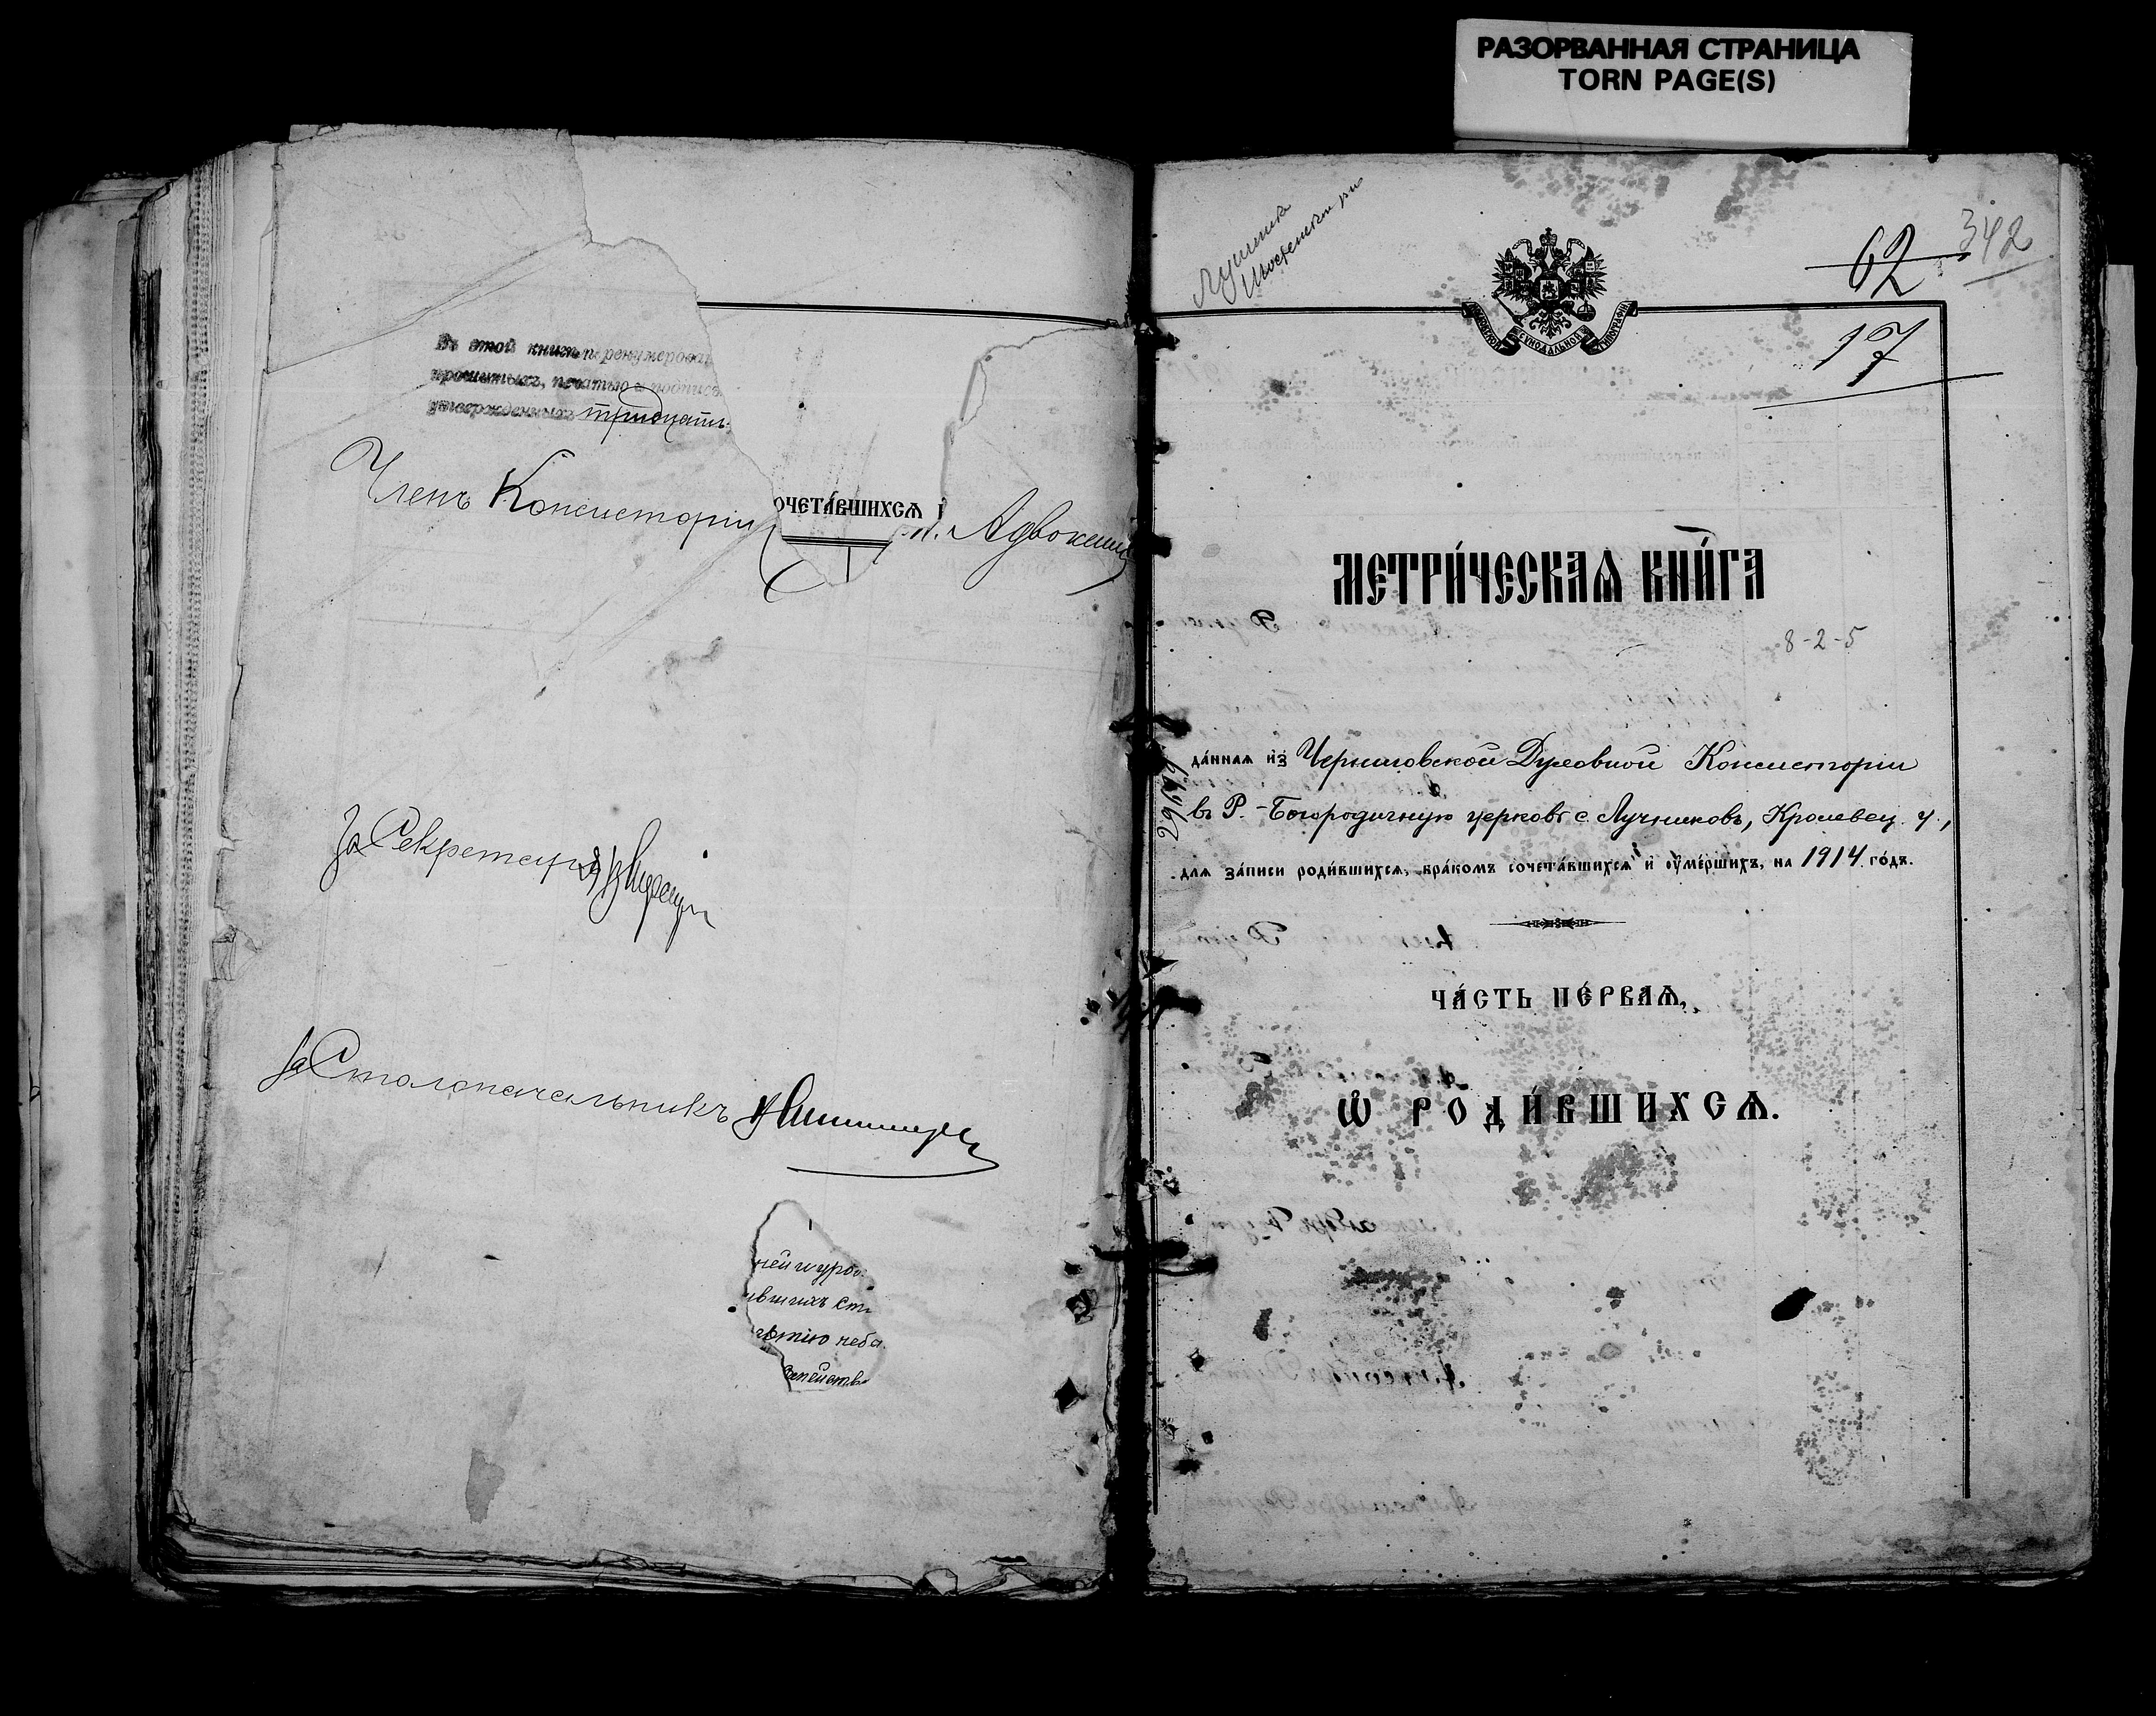 РАЗОРВАННАЯ СТРАНИЦА
TORN PAGE(S)
Въ этой книгѣ перенумерован
прошитыхъ, печатью и подписью
утвержденныхъ тридцать
Членъ Консисторіи
очета́вшихсѧ
За Секретаря
За Столоначальникъ
ней и уро
ившихъ ст
лѣтію неба
412
62
342
17
МЕТРИ́ЧЕСКАѦ КНИ́ГА
8-2-5
да́ннаѧ и́з Черниговской Духовной Консисторіи
въ Р.-Богородичную церковь с. Лучниковъ, Кролевец. у.,
длѧ за́писи роди́вшихсѧ, бра́комъ сочета́вшихсѧ и҆ ᲂу҆ме́ршихъ, на 1914 го́дъ.
ЧА́СТЬ ПЕ́РВАѦ,
Ѽ РОДИ́ВШИХСѦ.